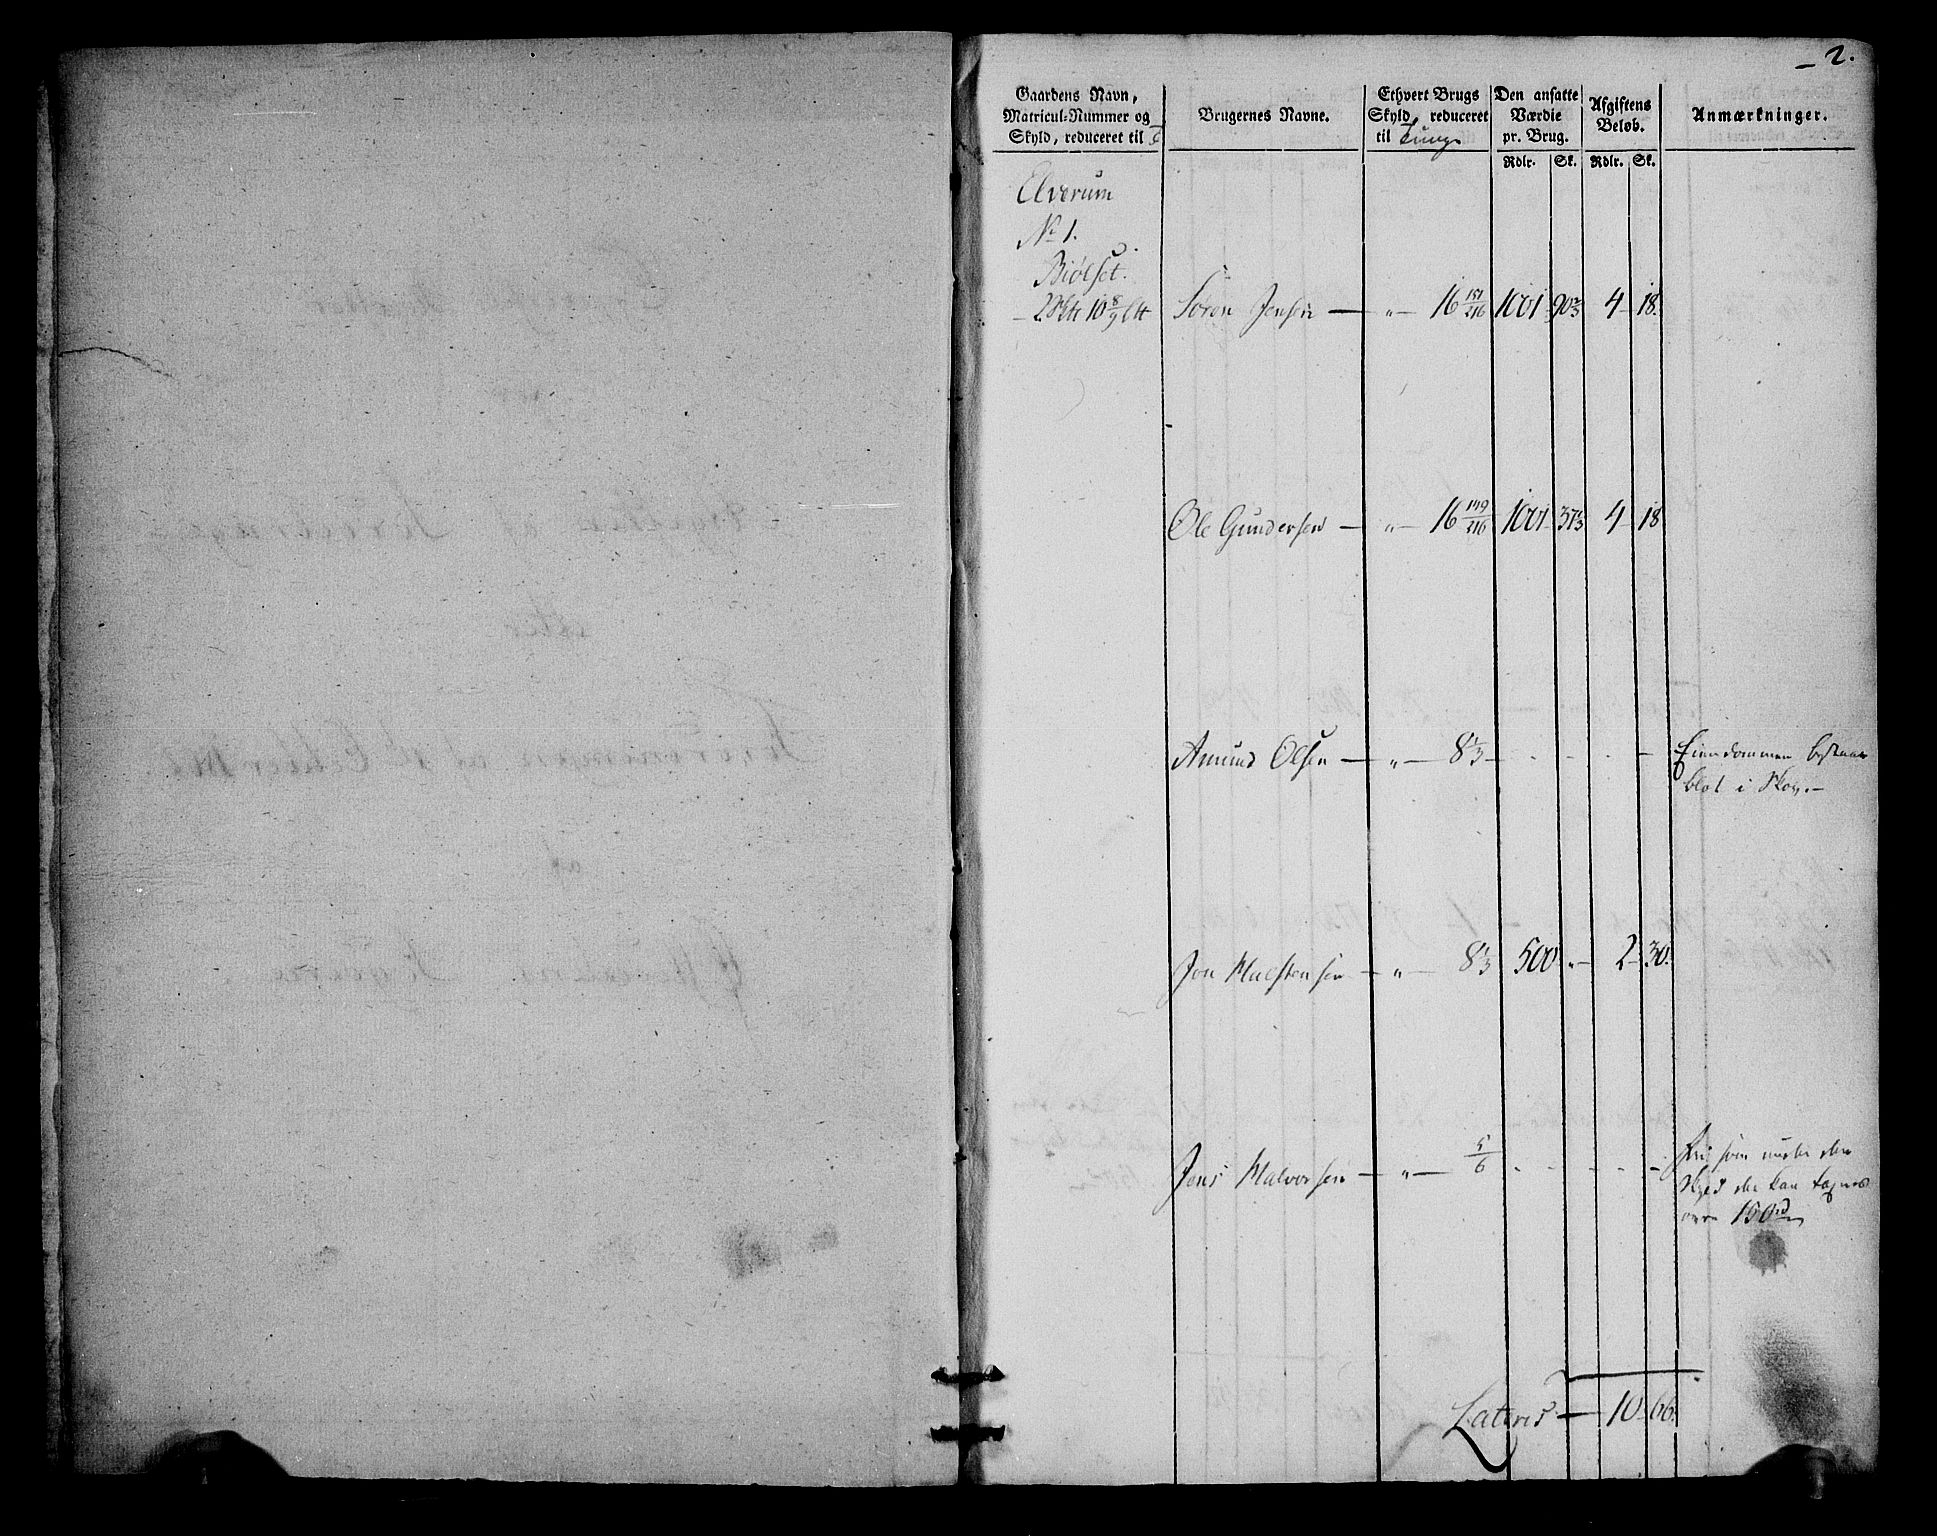 - 2.
Gaardens Navn,
Matricul-Nummer og
Skyld, reduceret til
Brugernes Navne.
Ethvert Brugs
Skyld, reduceret
til Tunge
Den ansatte
Værdie
pr. Brug.
Afgiftens
Beløb.
Anmærkninger.
Rdlr. Sk. Rdlr. Sk.
Elverum
No 1.
Biølset.
10 8/9 Søren Jensen — " — 16 151/216 1001 - 90 2/3 4 - 18.
Ole Gundersen — " — 16 149/216 1001 - 37 2/3 4 - 18
Amund Olsen — " — 8 1/3 - - - - - Eiendommen bestaar
blot i Skov. -
Jon Halstensen — " — 8 1/3 500 " - 2 - 30.
Jens Halvorsen — " — 5/6 - - - - - Fri som under den
Skyld der kan tages
over 150 rd
Lateris — 10 - 66.